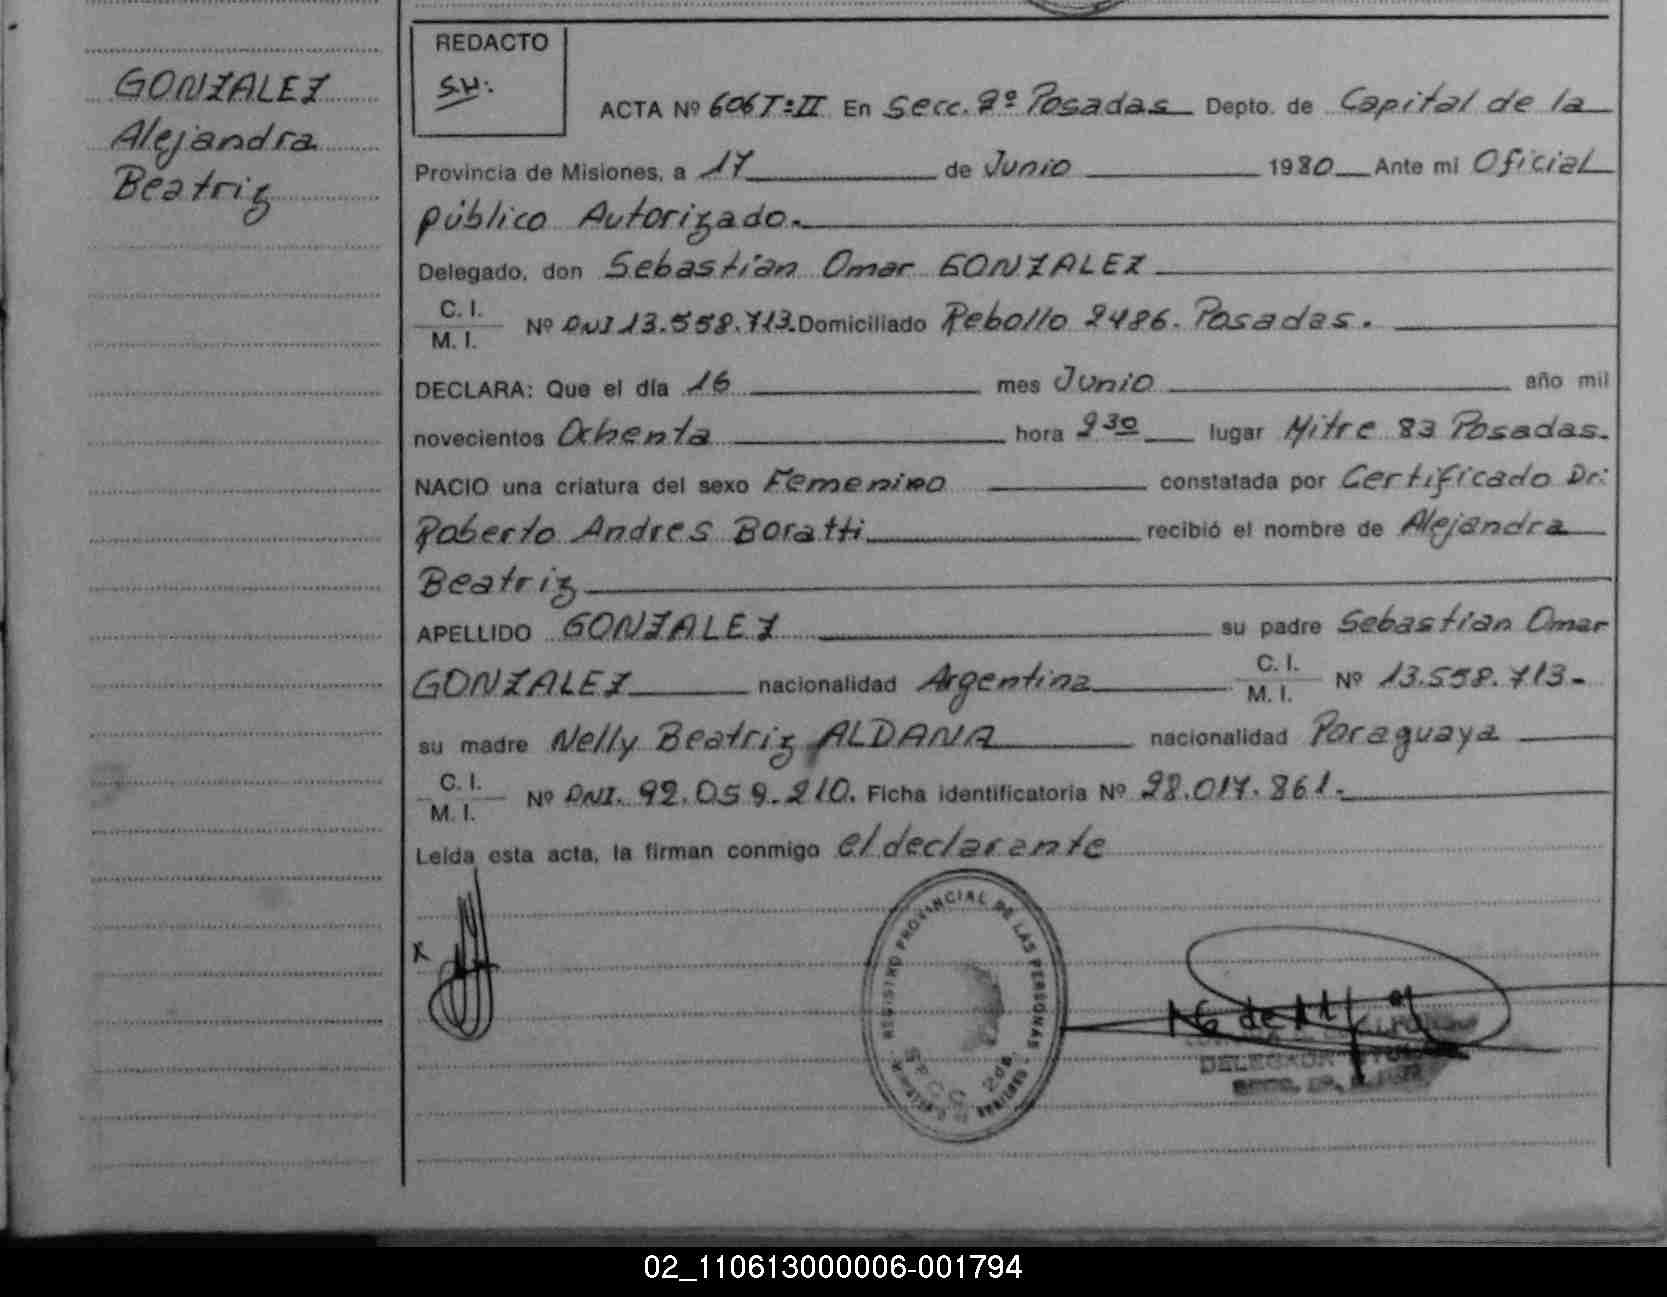 GONZALEZ
Alejandra
Beatriz
REDACTO
S.H:
ACTA Nº 606 Tº II En Secc. 2º Posadas Depto. de Capital de la
Provincia de Misiones, a 17 de Junio 1980 Ante mi Oficial
público Autorizado.
Delegado, don Sebastián Omar GONZALEZ
C. I.
M. I. Nº DNI 13.558.713. Domiciliado Rebollo 2486. Posadas.
DECLARA: Que el día 16 mes Junio año mil
novecientos Ochenta hora 2 30 lugar Mitre 83 Posadas.
NACIO una criatura del sexo Femenino constatada por Certificado Dr:
Roberto Andres Boratti recibió el nombre de Alejandra
Beatriz
APELLIDO GONZALEZ su padre Sebastián Omar
GONZALEZ nacionalidad Argentina C. I. M. I. Nº 13.558.713.
su madre Nelly Beatriz ALDANA nacionalidad Paraguaya
C. I.
M. I. Nº DNI. 92.059.210. Ficha identificatoria Nº 28.017.861.
Leída esta acta, la firman conmigo el declarante
x
REGISTRO PROVINCIAL DE LAS PERSONAS
SECC. 2da
DELEGADA
02_110613000006-001794